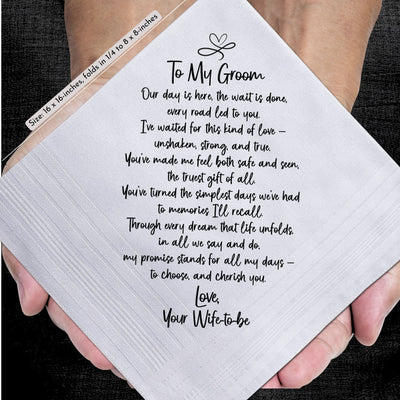 Size: 16 x 16-inches, folds in 1/4 to 8 x 8-inches
To My Groom
Our day is here, the wait is done,
every road led to you.
I've waited for this kind of love –
unshaken, strong, and true.
You've made me feel both safe and seen,
the truest gift of all.
You've turned the simplest days we've had
to memories I'll recall.
Through every dream that life unfolds,
in all we say and do,
my promise stands for all my days –
to choose, and cherish you.
Love,
Your Wife-to-be